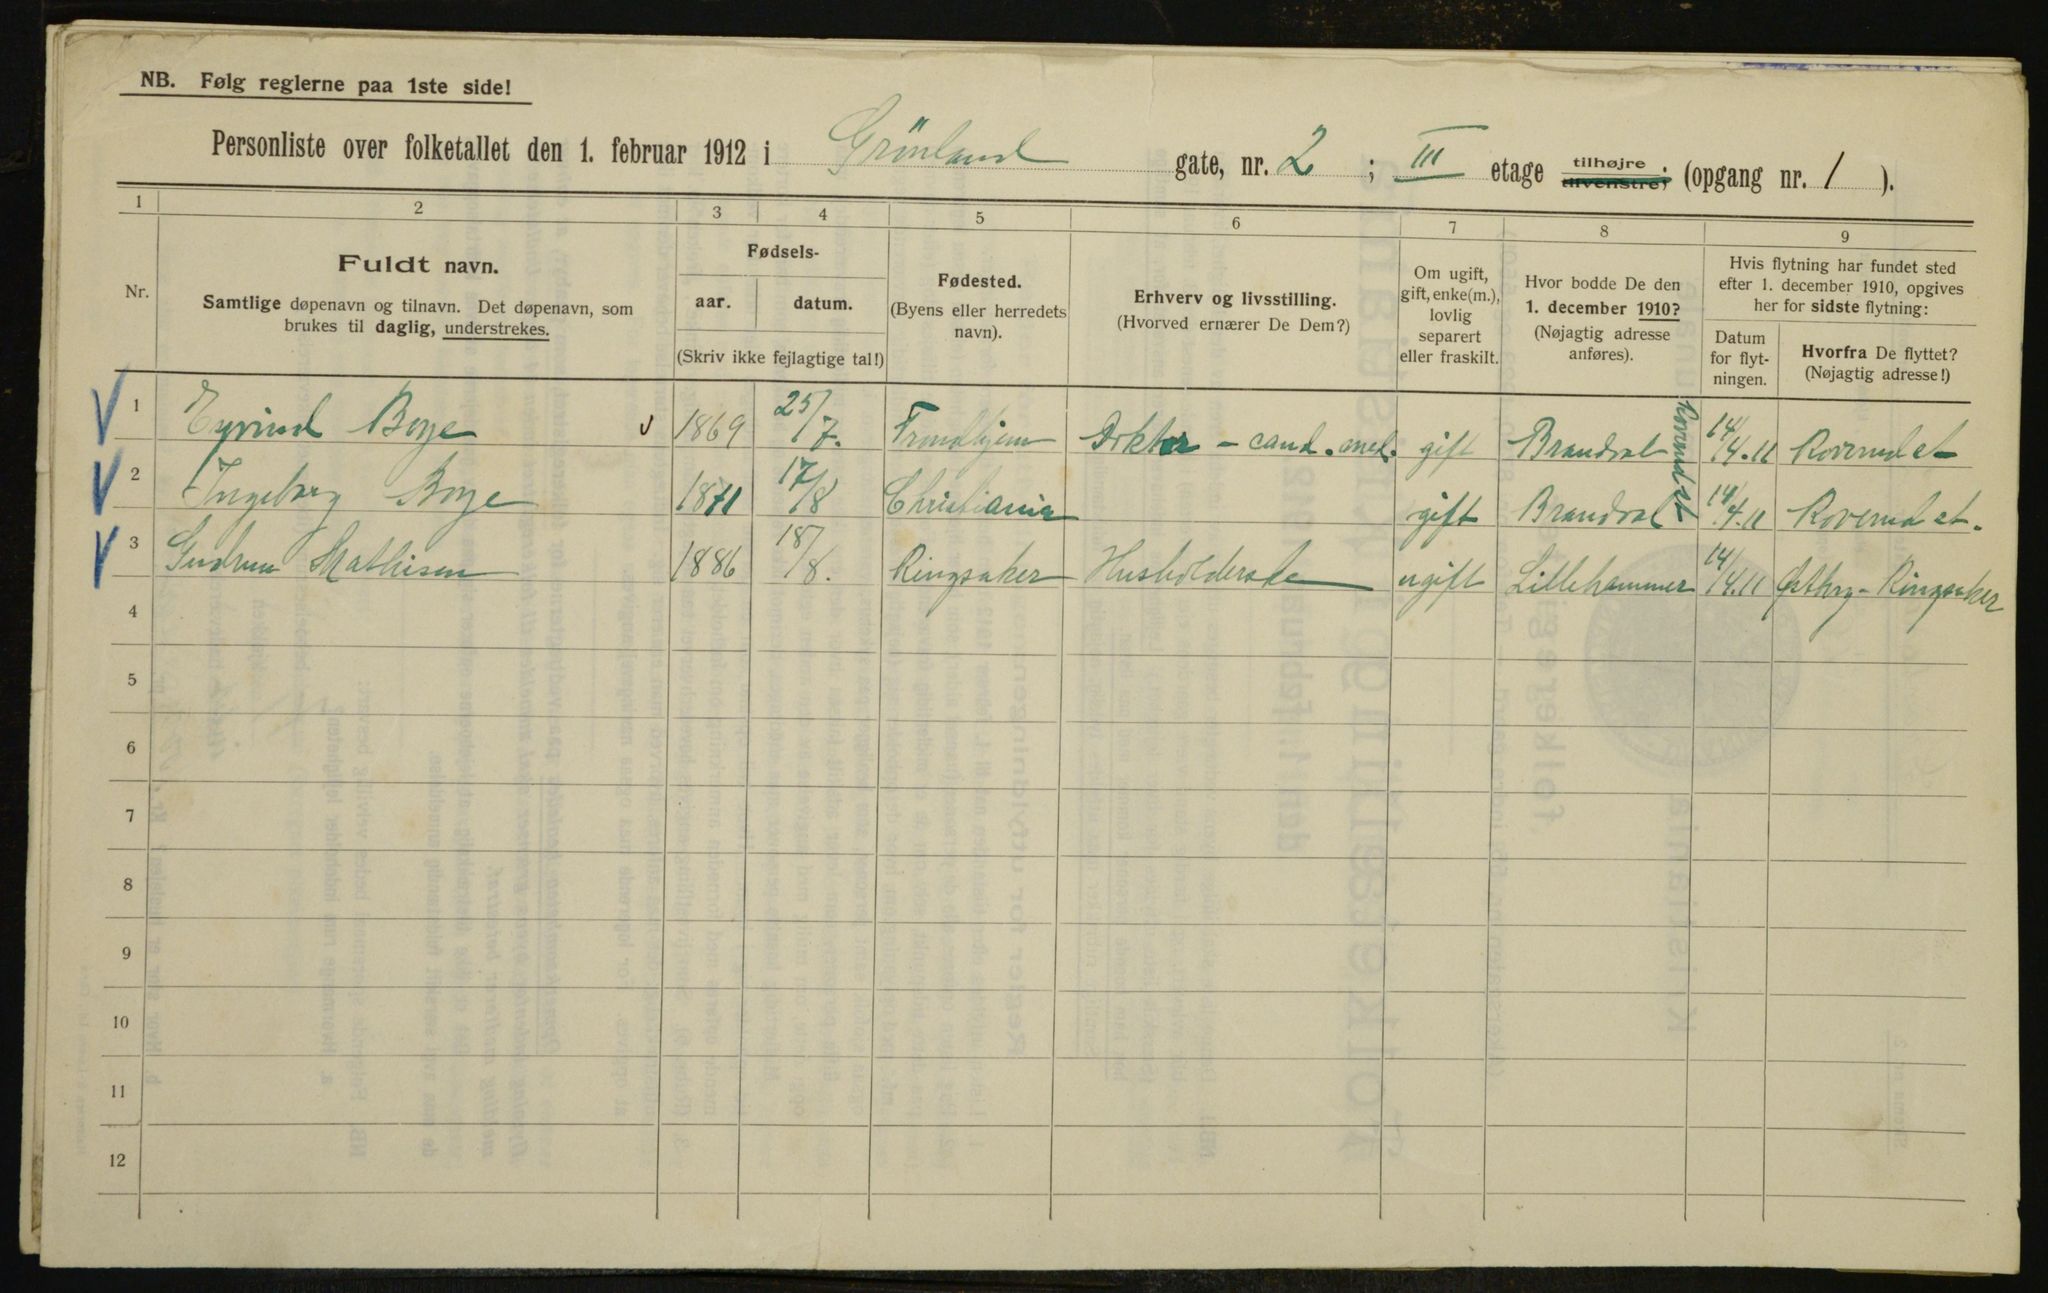 NB. Følg reglerne paa 1ste side!
Personliste over folketallet den 1. februar 1912 i Grönland gate, nr. 2 ; III etage tilhøjre tilvenstre; (opgang nr. 1 ).
1 2 3 4 5 6 7 8 9
Nr.
Fuldt navn.
Samtlige døpenavn og tilnavn. Det døpenavn, som
brukes til daglig, understrekes.
Fødsels-
aar. datum.
(Skriv ikke fejlagtige tal!)
Fødested.
(Byens eller herredets
navn).
Erhverv og livsstilling.
(Hvorved ernærer De Dem?)
Om ugift,
gift, enke(m.),
lovlig
separert
eller fraskilt.
Hvor bodde De den
1. december 1910?
(Nøjagtig adresse
anføres).
Hvis flytning har fundet sted
efter 1. december 1910, opgives
her for sidste flytning:
Datum
for flyt-
ningen.
Hvorfra De flyttet?
(Nøjagtig adresse!)
1 Eyvind Boye 1869 25/7. Trondhjem Doktor - cand. med. gift Brandval Roverudet 14/4.11 Roverudet
2 Ingeborg Boye 1871 17/8 Christiania gift Brandval 14/4.11 Roverudet.
3 Gudrun Mathisen 1886 18/8. Ringsaker Husholderske ugift Lillehammer 14/4.11 Østby - Ringsaker
4
5
6
7
8
9
10
11
12